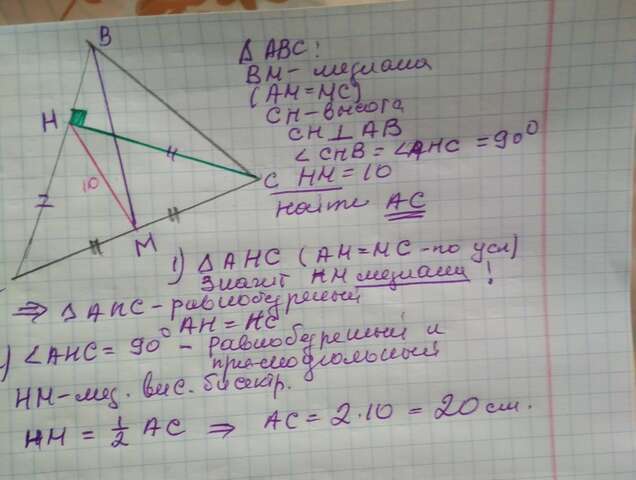 B
H
C
M
10
Δ ABC:
BM - медиана
(AM = MC)
CH - высота
CH ⊥ AB
∠CHB = ∠AHC = 90°
HM = 10
найти AC
1) Δ AHC (AM = MC - по усл)
Значит HM медиана!
⇒ Δ AHC - равнобедреный
AH = HC
∠AHC = 90° - равнобедреный и
прямоугольный
HM - мед. выс. биссектр.
HM = 1/2 AC ⇒ AC = 2·10 = 20 см.